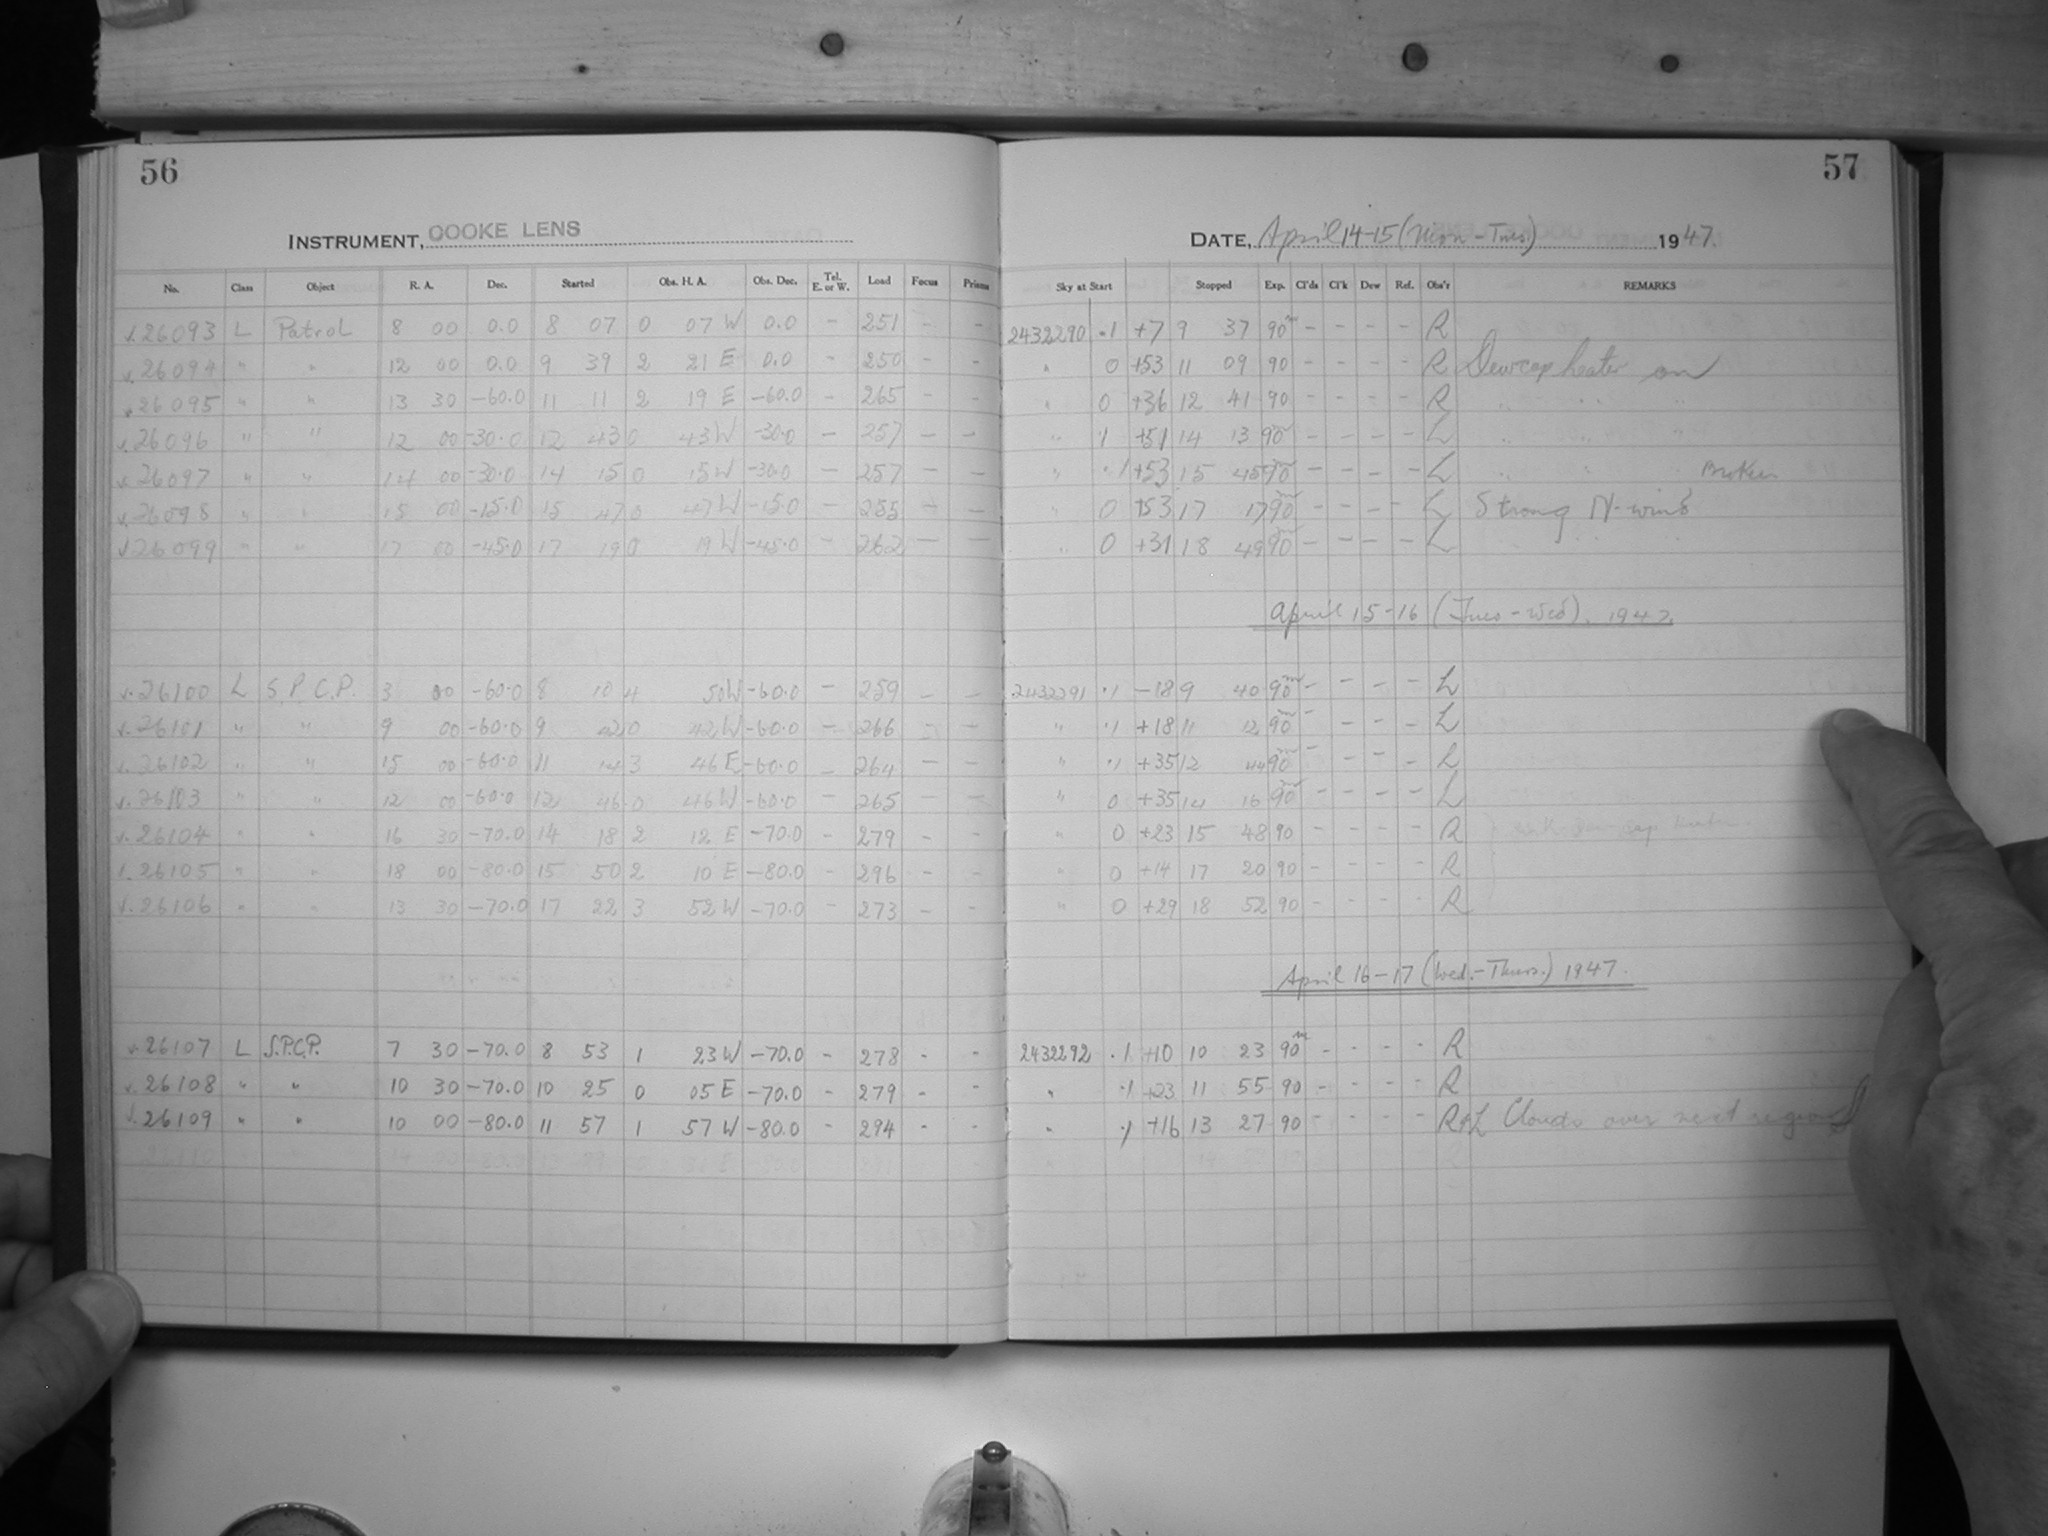 56
INSTRUMENT, COOKE LENS
No. Class Object R. A. Dec. Started Obs. H. A. Obs. Dec. Tel. E. or W. Load Focus Prisms
v.26093 L Patrol 8 00 0.0 8 07 0 07 W 0.0 - 251 - -
v.26094 " " 12 00 0.0 9 39 2 21 E 0.0 - 250 - -
v.26095 " " 13 30 -60.0 11 11 2 19 E -60.0 - 265 - -
v.26096 " " 12 00 -30.0 12 43 0 43 W -30.0 - 257 - -
v.26097 " " 14 00 -30.0 14 15 0 15 W -30.0 - 257 - -
v.26098 " " 15 00 -15.0 15 47 0 47 W -15.0 - 255 - -
v.26099 " " 17 00 -45.0 17 19 0 19 W -45.0 - 262 - -
v.26100 L S.P.C.P. 3 00 -60.0 8 10 4 50 W -60.0 - 259 - -
v.26101 " " 9 00 -60.0 9 42 0 42 W -60.0 - 266 - -
v.26102 " " 15 00 -60.0 11 14 3 46 E -60.0 - 264 - -
v.26103 " " 12 00 -60.0 12 46 0 46 W -60.0 - 265 - -
v.26104 " " 16 30 -70.0 14 18 2 12 E -70.0 - 279 - -
v.26105 " " 18 00 -80.0 15 50 2 10 E -80.0 - 296 - -
v.26106 " " 13 30 -70.0 17 22 3 52 W -70.0 - 273 - -
v.26107 L S.P.C.P. 7 30 -70.0 8 53 1 23 W -70.0 - 278 - -
v.26108 " " 10 30 -70.0 10 25 0 05 E -70.0 - 279 - -
v.26109 " " 10 00 -80.0 11 57 1 57 W -80.0 - 294 - -
57
DATE, April 14-15 (Mon-Tues.) 1947.
Sky at Start Stopped Exp. Cl'ds Cl'k Dew Ref. Obs'r REMARKS
2432290 .1 +7 9 37 90m - - - - R
" 0 +53 11 09 90 - - - - R Dewcap heater on
" 0 +36 12 41 90 - - - - R " " "
" .1 +51 14 13 90m - - - - L " " "
" .1 +53 15 45 90m - - - - L " " Broken
" 0 +53 17 17 90m - - - - L Strong N-wind
" 0 +31 18 49 90m - - - - L " " "
April 15-16 (Tues-Wed). 1947.
2432291 .1 -18 9 40 90m - - - - L
" .1 +18 11 12 90m - - - - L
" .1 +35 12 44 90m - - - - L
" 0 +35 14 16 90m - - - - L
" 0 +23 15 48 90 - - - - R
" 0 +14 17 20 90 - - - - R
" 0 +29 18 52 90 - - - - R
April 16-17 (Wed.-Thurs.) 1947.
2432292 .1 +10 10 23 90m - - - - R
" .1 +23 11 55 90 - - - - R
" .1 +16 13 27 90 - - - - R+L Clouds over next region